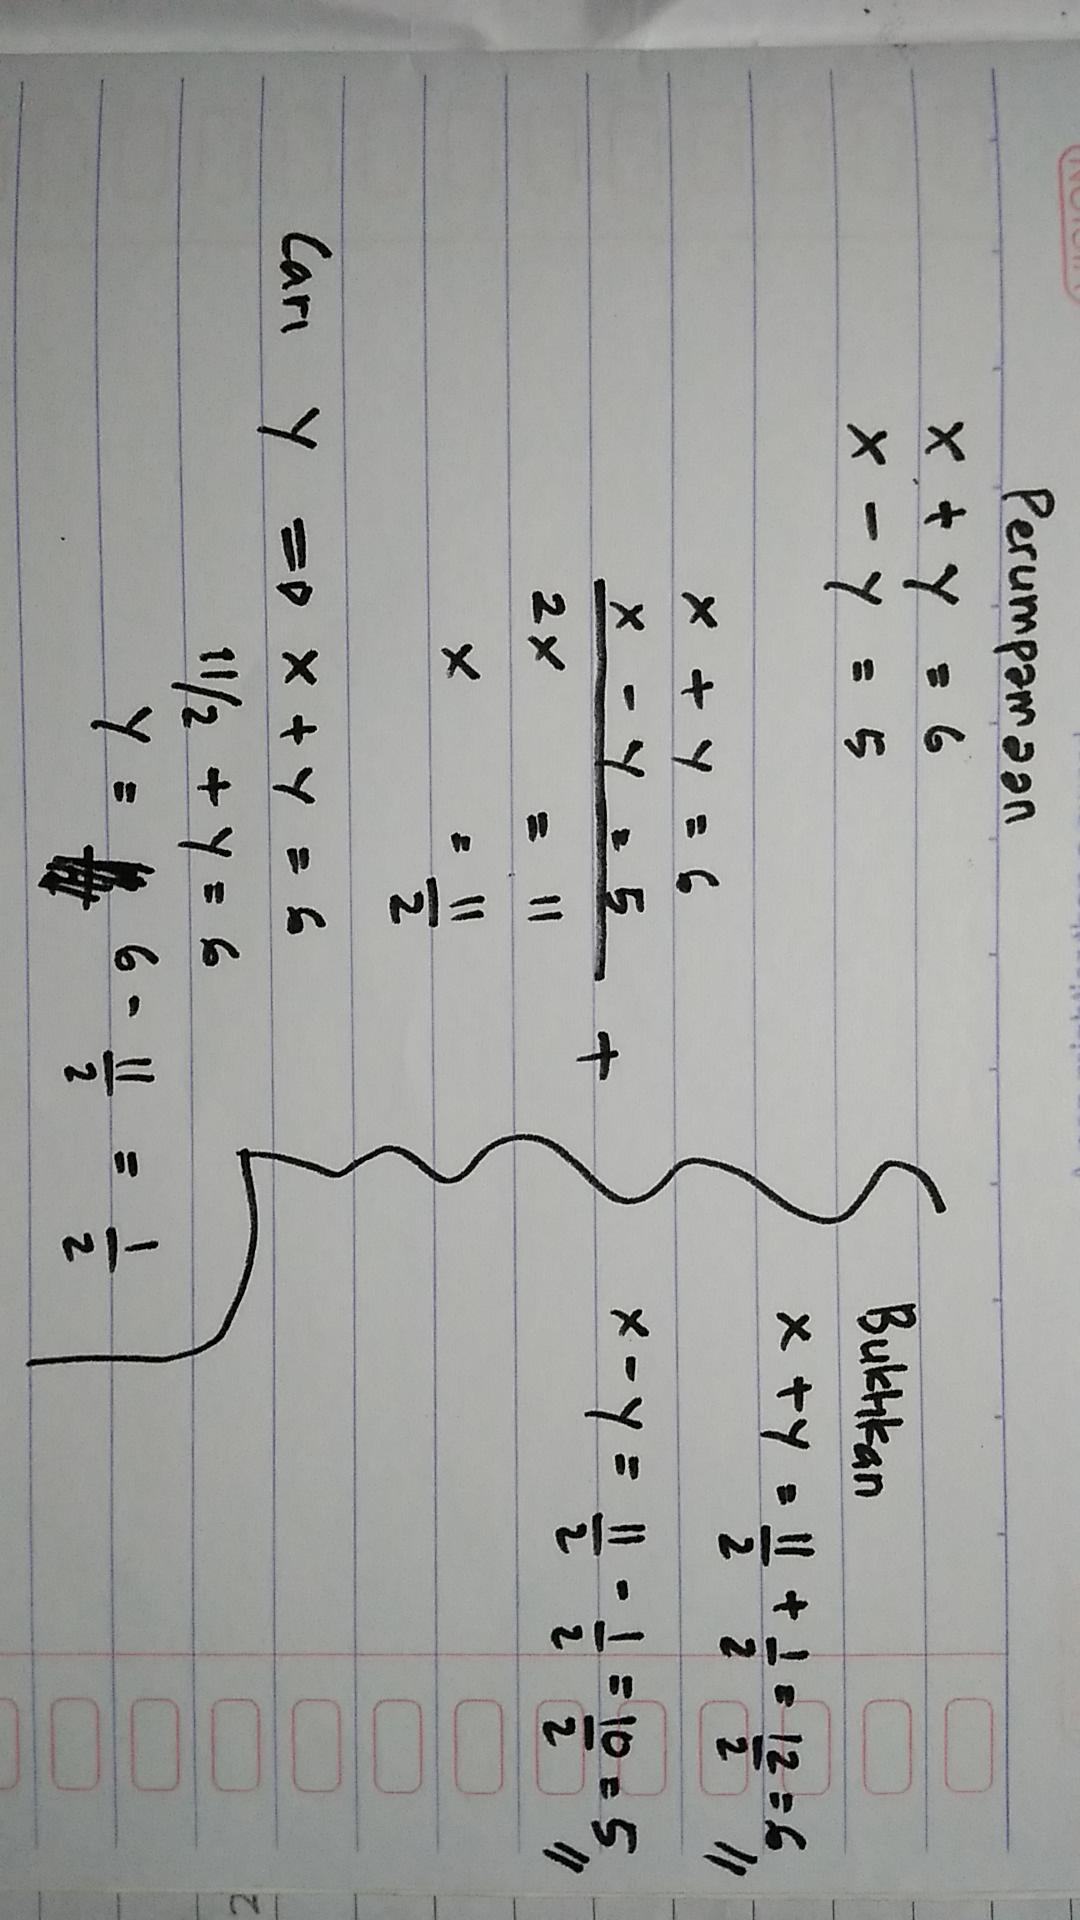 Perumpamaan
x + y = 6
x - y = 5
x + y = 6
x - y = 5 +
2x = 11
x = 11/2
Cari y => x + y = 6
11/2 + y = 6
y = 6 - 11/2 = 1/2
Buktikan
x + y = 11/2 + 1/2 = 12/2 = 6 //
x - y = 11/2 - 1/2 = 10/2 = 5 //
2